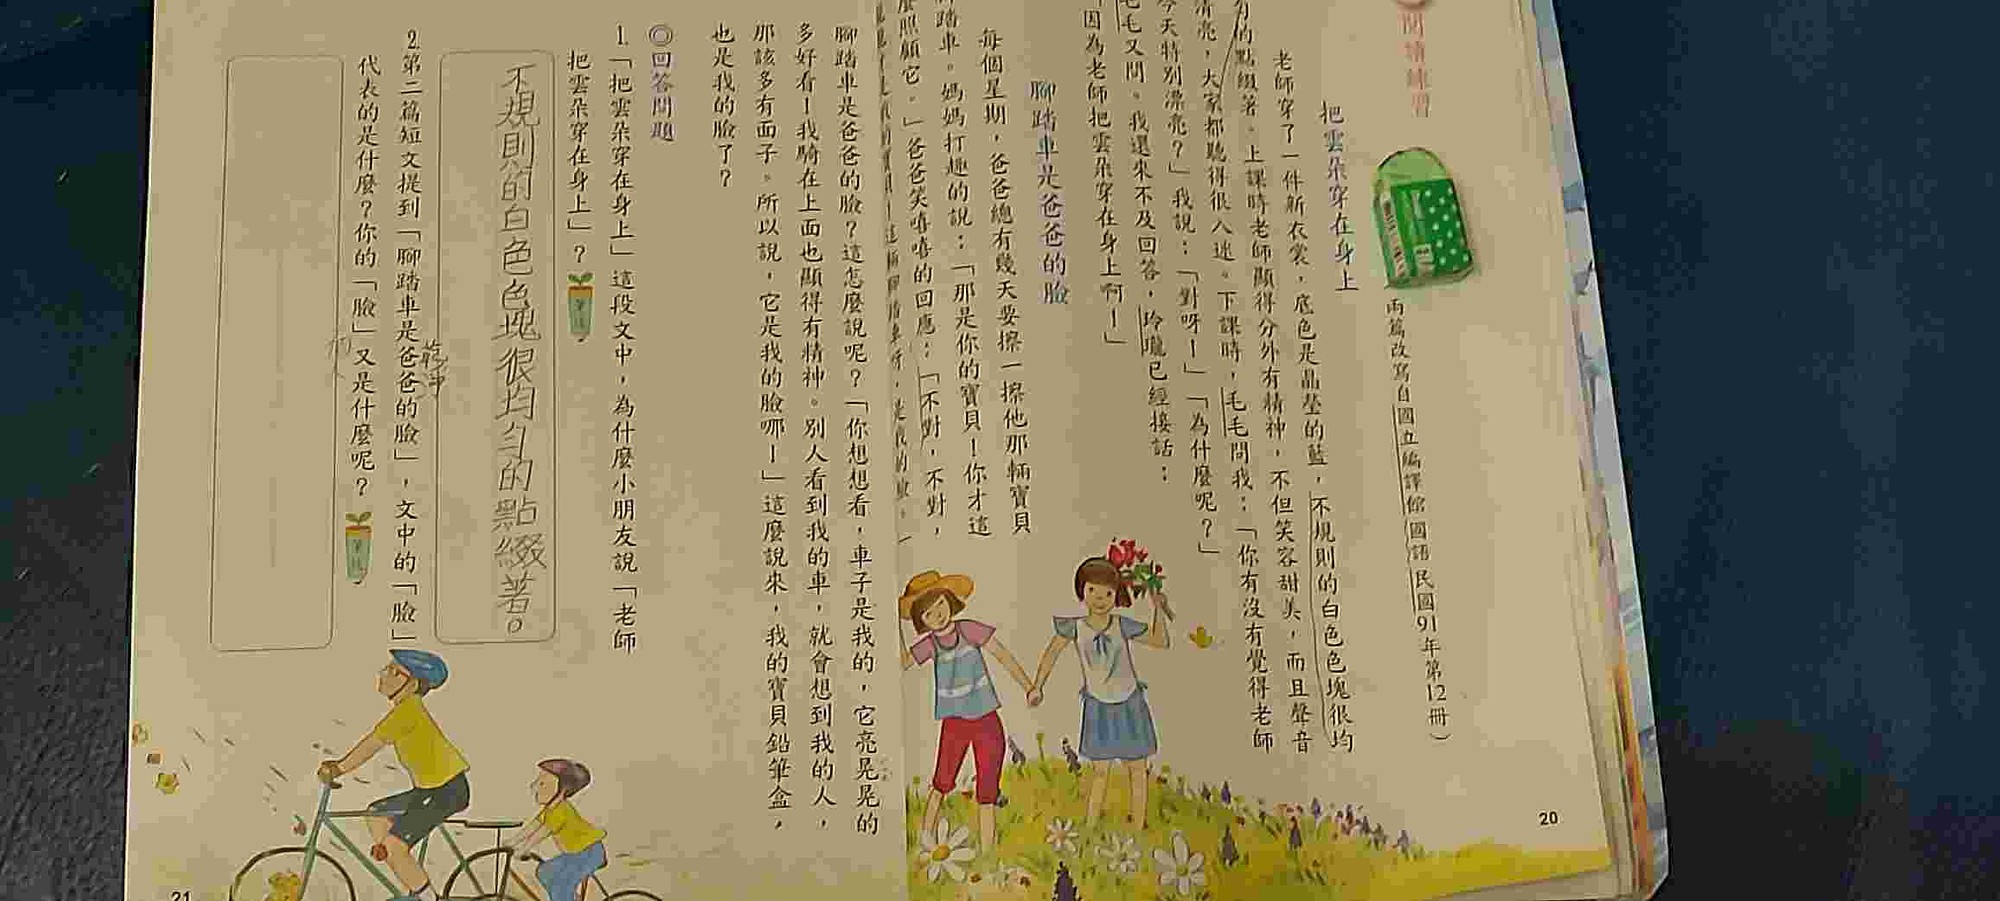 閱讀練習
把雲朵穿在身上
兩篇改寫自國立編譯館國語民國91年第12冊）
老師穿了一件新衣裳，底色是晶瑩的藍，不規則的白色色塊很均
勻的點綴著。上課時老師顯得分外有精神，不但笑容甜美，而且聲音
清亮，大家都聽得很入迷。下課時，毛毛問我：「你有沒有覺得老師
今天特別漂亮？」我說：「對呀！」「為什麼呢？」
毛毛又問。我還來不及回答，玲瓏已經接話：
因為老師把雲朵穿在身上啊！」
腳踏車是爸爸的臉
每個星期，爸爸總有幾天要擦一擦他那輛寶貝
腳踏車。媽媽打趣的說：「那是你的寶貝！你才這
麼照顧它。」爸爸笑嘻嘻的回應：「不對，不對，
這輛腳踏車呀，是我的臉。」
腳踏車是爸爸的臉？這怎麼說呢？「你想想看，車子是我的，它亮晃晃的
多好看！我騎在上面也顯得有精神。別人看到我的車，就會想到我的人，
那該多有面子。所以說，它是我的臉哪！」這麼說來，我的寶貝鉛筆盒，
也是我的臉了？
◎回答問題
1.「把雲朵穿在身上」這段文中，為什麼小朋友說「老師
把雲朵穿在身上」？
不規則的白色色塊很均勻的點綴著。
2.第二篇短文提到「腳踏車是爸爸的臉」，文中的「臉」
乾淨
代表的是什麼？你的「臉」又是什麼呢？
20
21